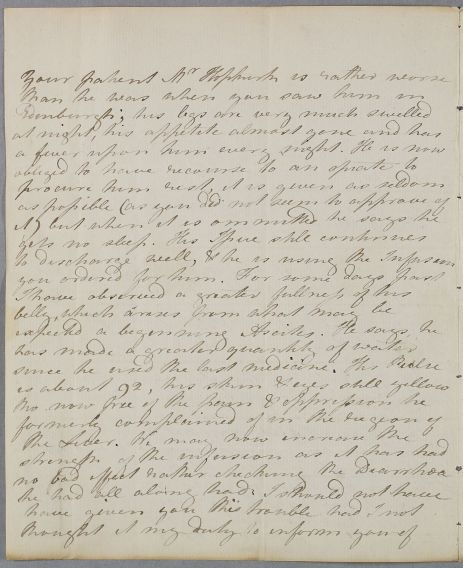 Your patient Mr Hopkirk is rather worse
than he was when you saw him in
Edinburgh; his legs are very much swelled
at night, his appetite almost gone and has
a fever upon him every night. He is now
obliged to have recourse to an opiate to
procure him rest, it is given as seldom
as possible (as you did not seem to approve of
it) but when it is ommitted he says he
gets no sleep. His Issue still continues
to discharge well, & he is using the Infusion
you ordered for him. For some days past
I have observed a greater fullness of his
belly, which arises from what may be
expected a beginning Ascites. He says he
has made a greater quantity of water
since he used the last medicine. His Pulse
is about 92, his skin & eyes still yellow
tho now free of the pain & oppression he
formerly complained of in the region of
the Liver. He may now increase the
strength of the infusion as it has had
no bad effect rather checking the Diarrhœa
he had all along had. I should not have
have given you this trouble had I not
thought it my duty to inform you of